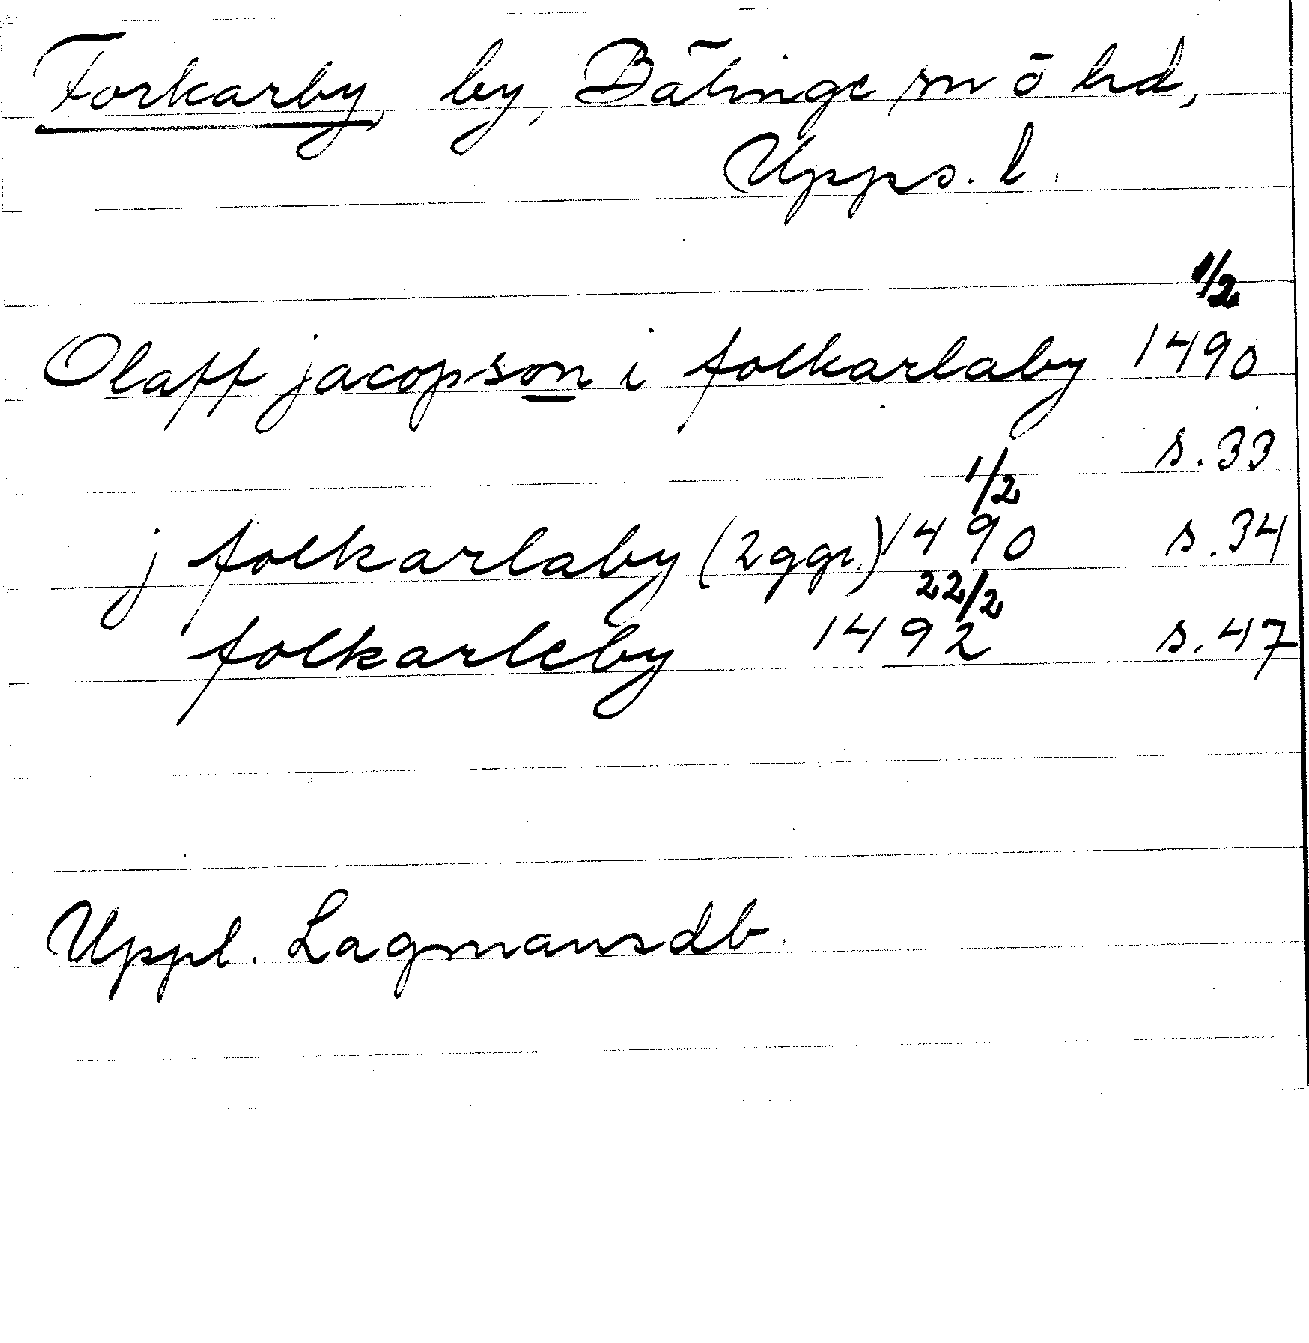 Forkarby, by, Bälinge sn o hd,
Upps. l.
Olaff jacopson i folkarlaby 1/2 1490
s. 33
j folkarlaby (2 ggr.) 1/2 1490 s. 34
folkarleby 22/2 1492 s. 47
Uppl. Lagmansdb.